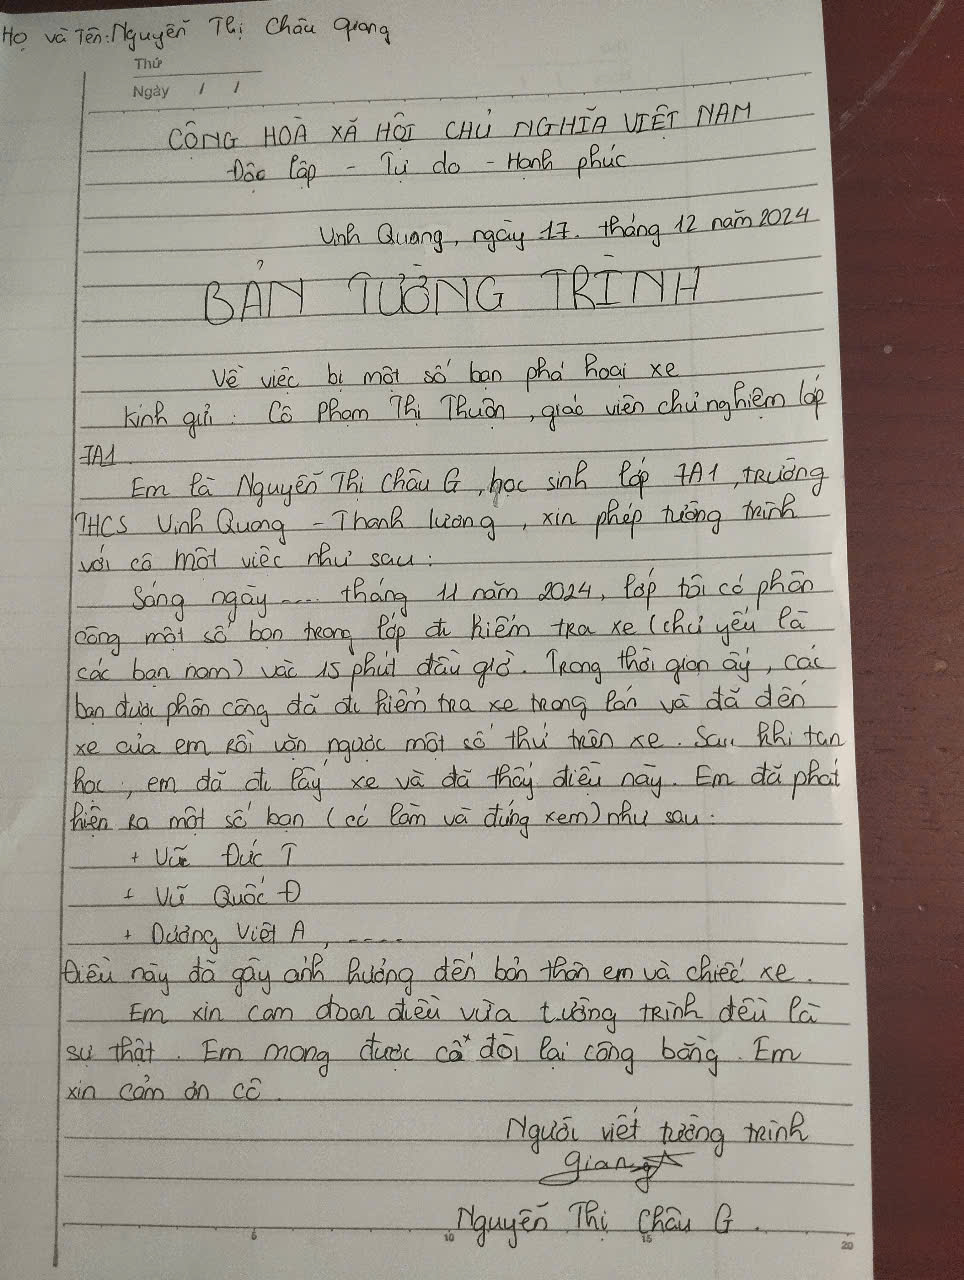 Họ và Tên: Nguyễn Thị Châu Giang
Thứ
Ngày / /
CỘNG HOÀ XÃ HỘI CHỦ NGHĨA VIỆT NAM
Độc lập - Tự do - Hạnh phúc
Vinh Quang, ngày 17. tháng 12 năm 2024
BẢN TƯỜNG TRÌNH
Về việc bị một số bạn phá hoại xe
Kính gửi: Cô Phạm Thị Thuần, giáo viên chủ nghiệm lớp
7A1
Em là Nguyễn Thị Châu G, học sinh lớp 7A1, trường
THCS Vinh Quang - Thanh lương, xin phép tường trình
với cô một việc như sau:
Sáng ngày .... tháng 11 năm 2024, lớp tôi có phân
công một số bạn trong lớp đi kiểm tra xe (chủ yếu là
các bạn nam) vào 15 phút đầu giờ. Trong thời gian ấy, các
bạn được phân công đã đi kiểm tra xe trong lán và đã đến
xe của em rồi vặn ngược một số thứ trên xe. Sau khi tan
học, em đã đi lấy xe và đã thấy điều này. Em đã phát
hiện ra một số bạn (có làm và đứng xem) như sau:
+ Vũ Đức T
+ Vũ Quốc Đ
+ Dương Việt A, .....
Điều này đã gây ảnh hưởng đến bản thân em và chiếc xe.
Em xin cam đoan điều vừa tường trình đều là
sự thật. Em mong được cô đòi lại công bằng. Em
xin cảm ơn cô.
Người viết tường trình
Giang
Nguyễn Thị Châu G.
5 10 15 20